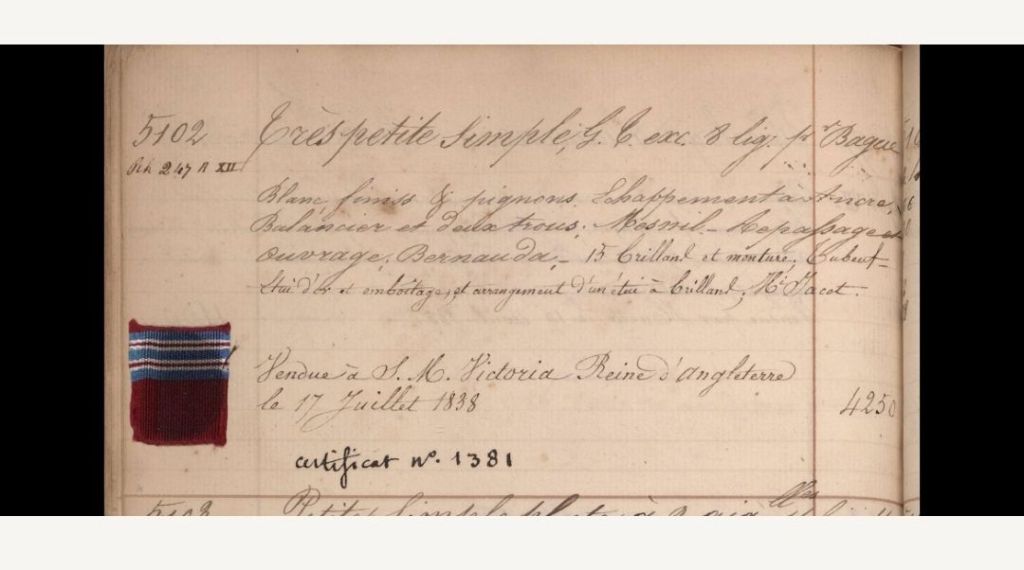 5102 Très petite simple, G. C. exc. 8 lig. pr Bague
Rh 247 A XII
Blanc finiss & pignons. Echappement à Ancre,
Balancier et deux trous; Mesnil_ Repassage et
ouvrage. Bernauda,_ 15 brilland et monture;
Etui d'or et emboîtage, et arrangement d'un étui à brilland, Mi Jacot.
Vendue à S. M. Victoria Reine d'angleterre
le 17 Juillet 1838 4250
certificat no. 1381
5103 Petite simple plate à